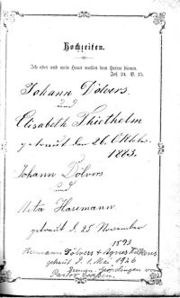 Hochzeiten.
Ich aber und mein Haus wollen dem Herrn dienen.
Jos. 24. V. 15.
Johann Dölvers
und
Elisabeth Thietholm
getraut den 26. Oktbr.
1883.
Johann Dölvers
und
Meta Hasemann
getraut d. 25. November
1893
Hermann Dölvers & Agnes
getraut d. 1. Mai 1926
von
Pastor